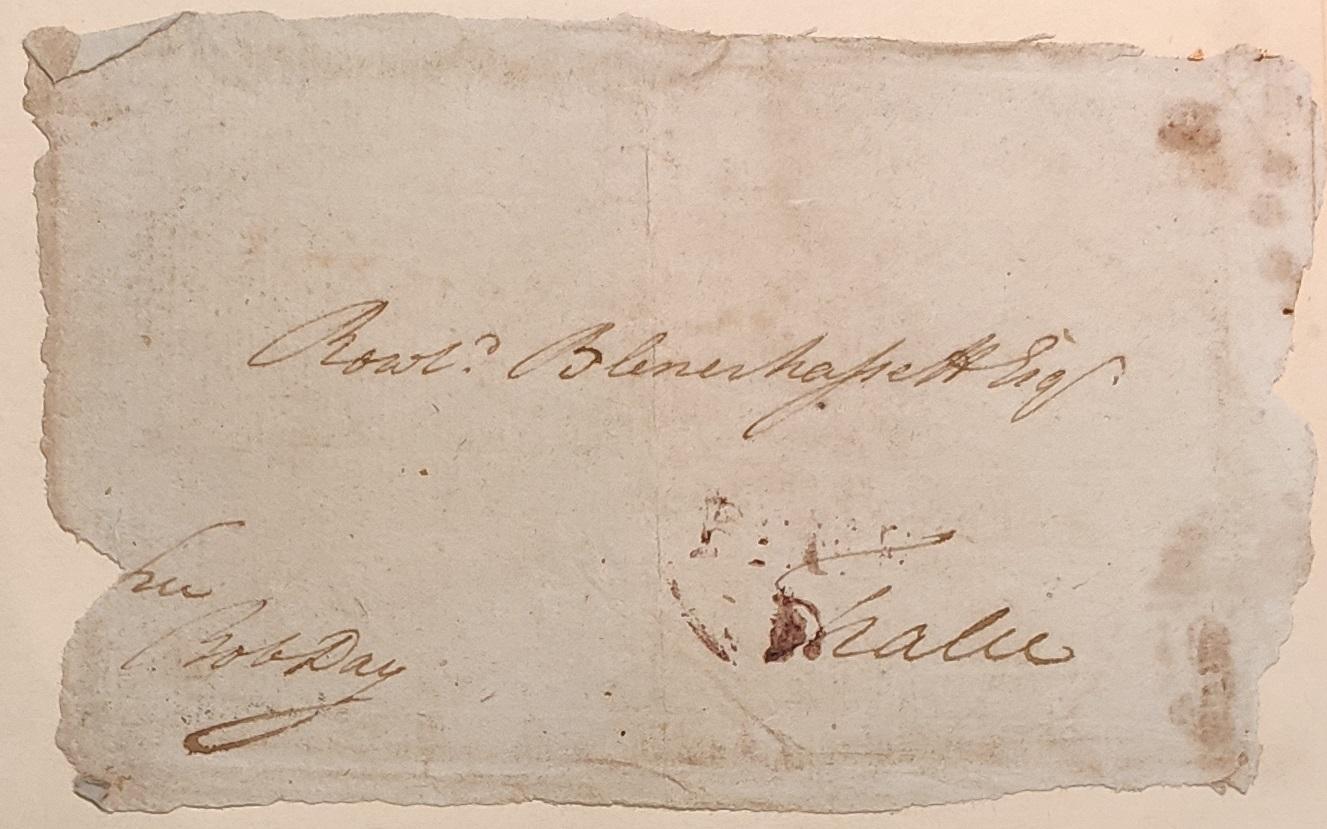 Rowld. Blenerhassett Esqr.
Tralee
Free
Bob Day